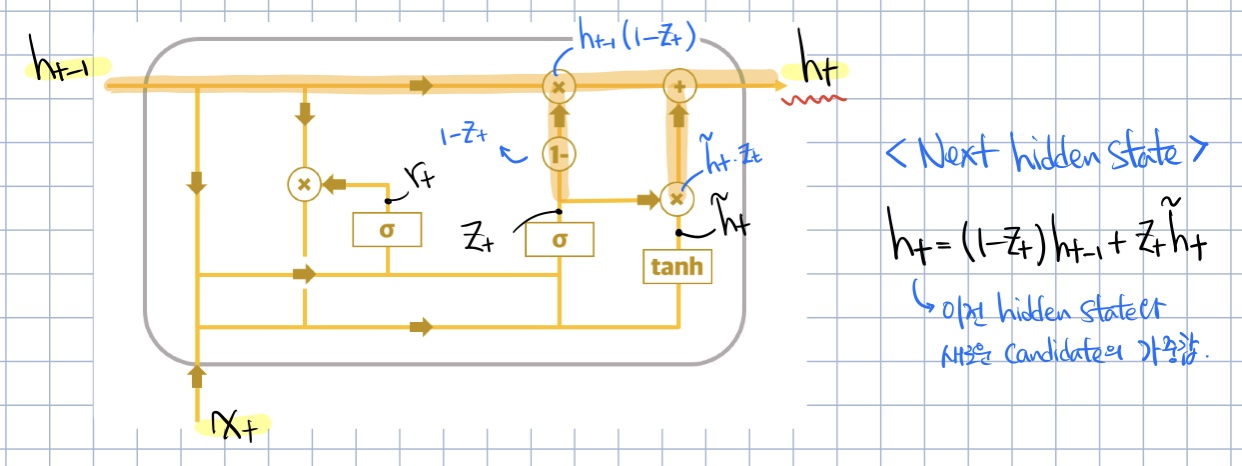 h_{t-1}
h_{t-1}(1-z_t)
h_t
×
+
1-z_t
1-
h̃_t·z_t
×
r_t
×
σ
z_t
σ
h̃_t
tanh
x_t
<Next hidden state>
h_t=(1-z_t)h_{t-1}+z_t h̃_t
이전 hidden state와
새로운 candidate의 가중합.